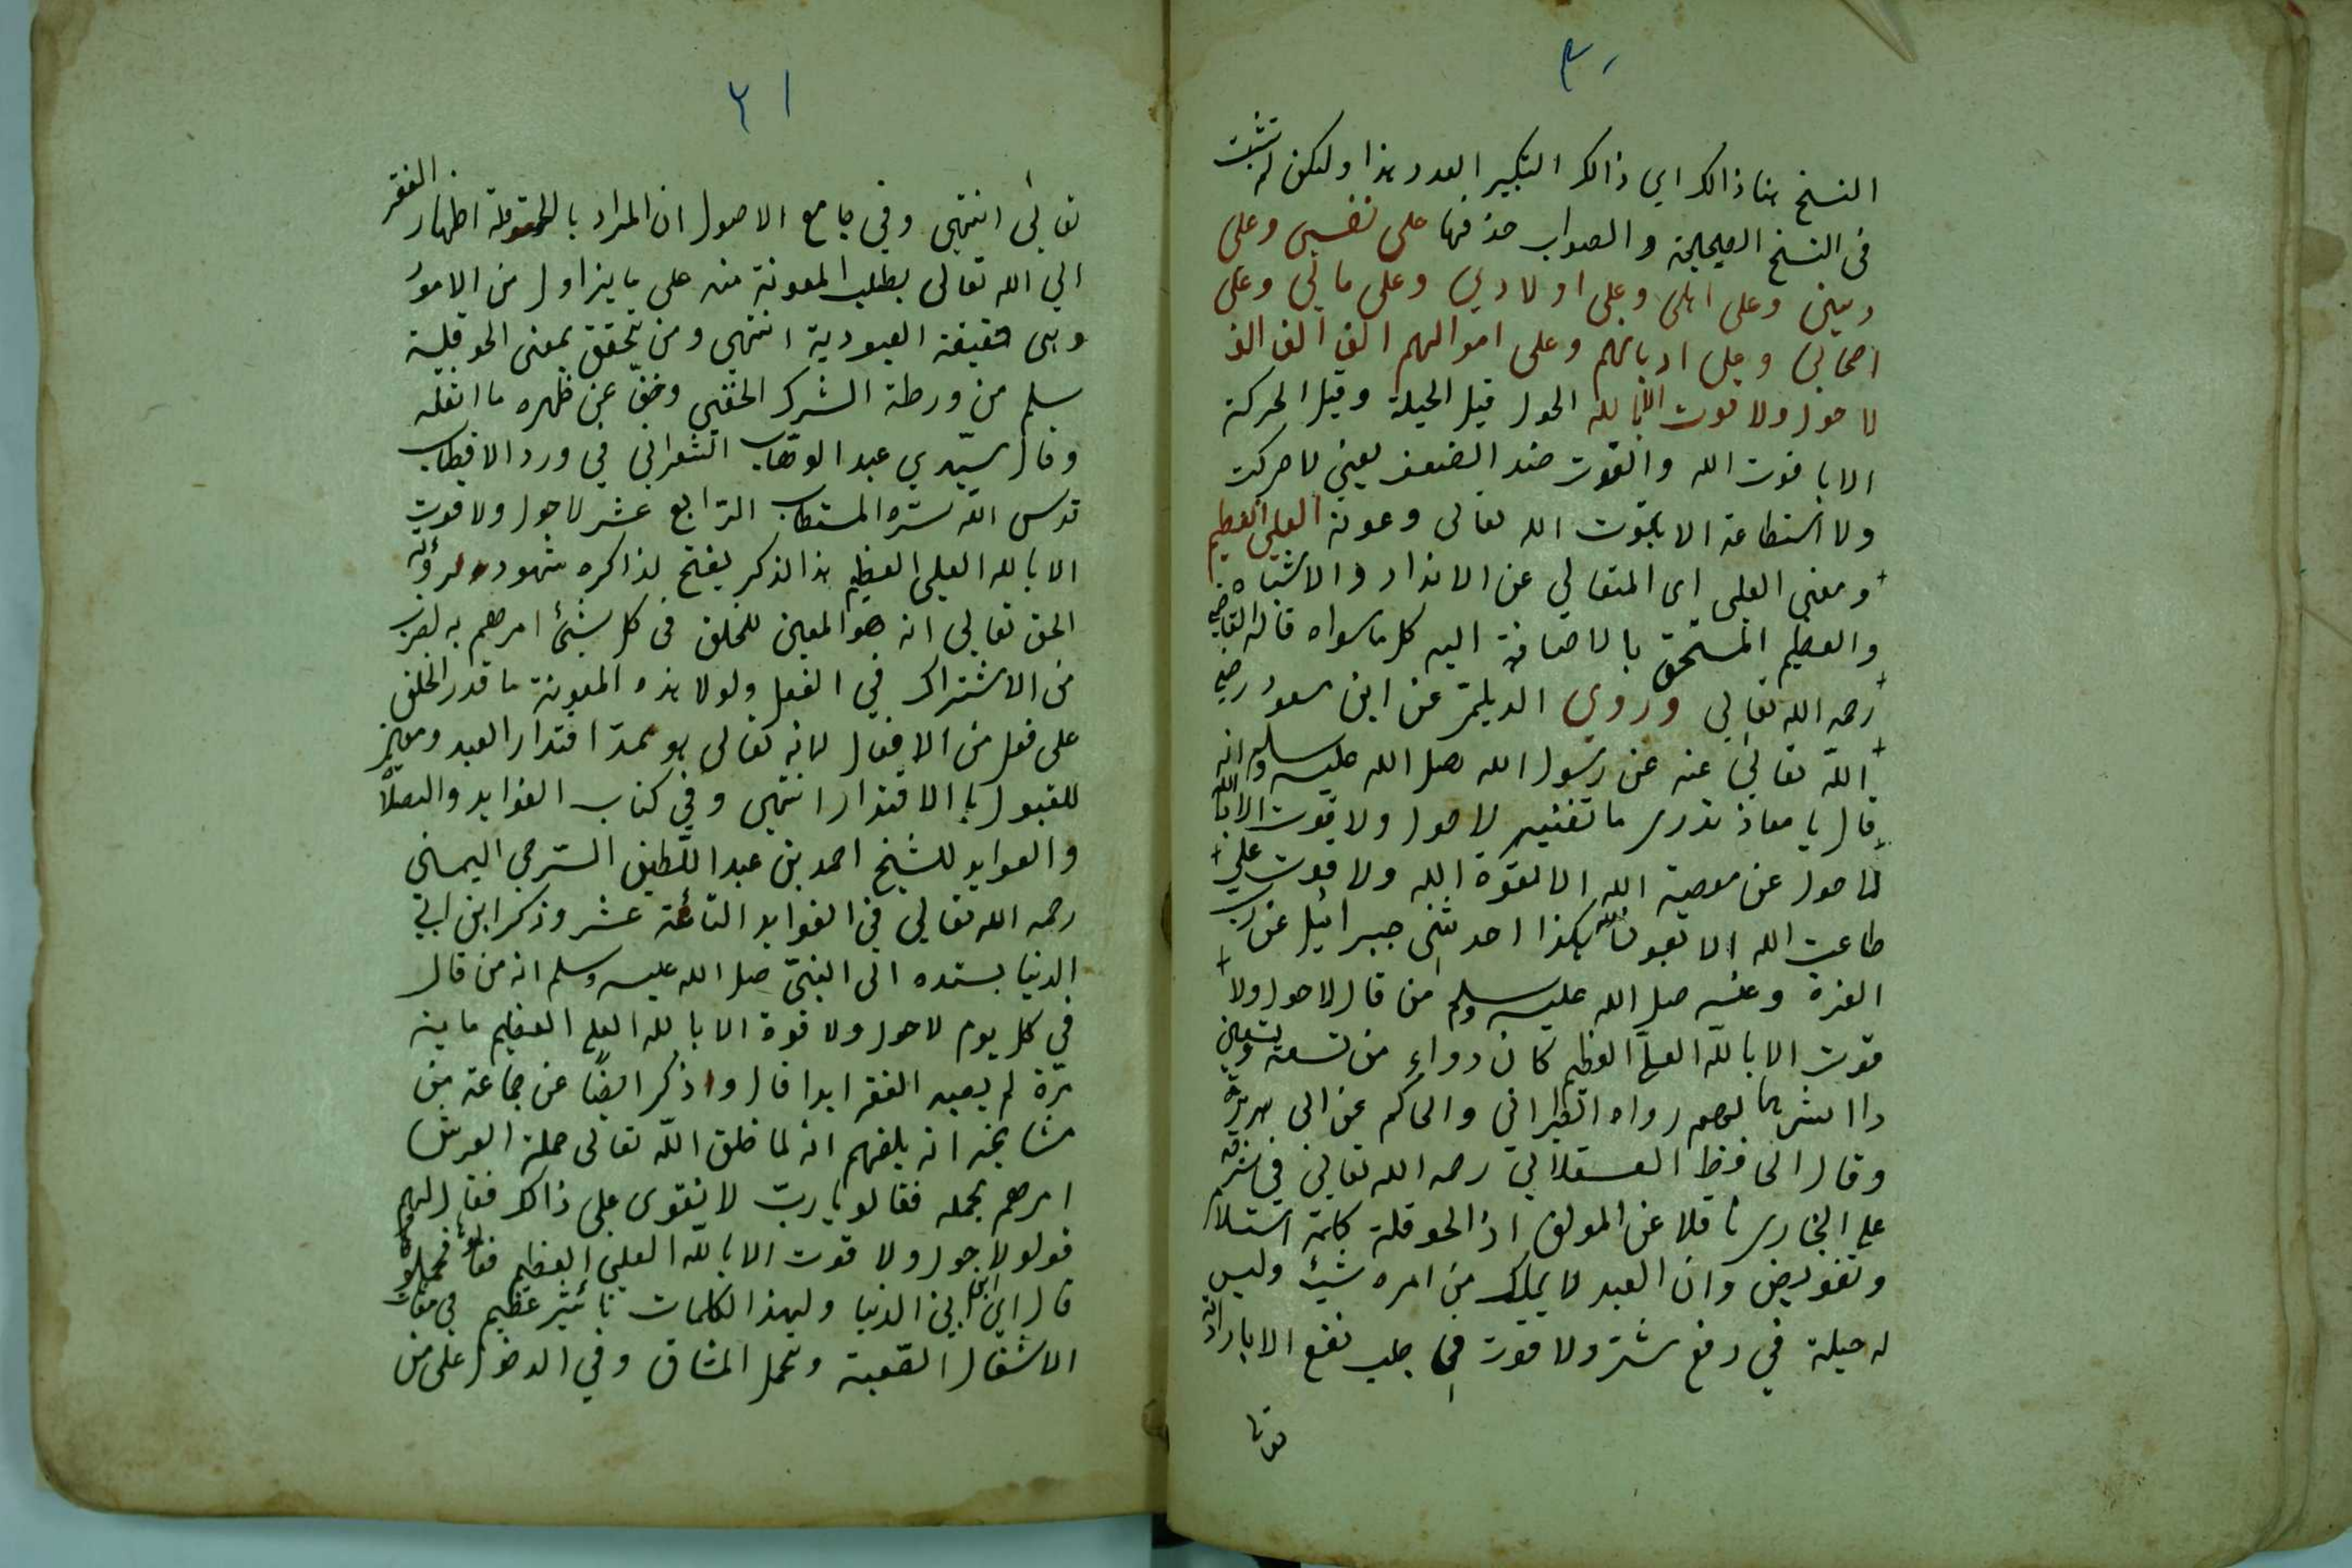 ٣٠
النسخ هنا ذالك اي ذالك التكبير العدد هذا ولكن لم تثبت
في النسخ الصحيحة والصواب حذفها على نفسي وعلى
ديني وعلى اهلي وعلى اولادي وعلى مالي وعلى
اصحابي وعلى اديانهم وعلى اموالهم الف الف الف
لا حول ولا قوت الا بالله الحول قيل الحيلة وقيل الحركة
الا با قوت الله والقوت ضد الضعف يعني لا حركت
ولا استطاعة الا بقوت الله تعالى وعونه العلي العظيم
ومعنى العلي اي المتعالي عن الانداد والاشباه
والعظيم المستحق بالاضافة اليه كل ماسواه قاله القاضي
رحمه الله تعالى وروي الديلمي عن ابن مسعود رضي
الله تعالى عنه عن رسول الله صل الله عليه وسلم انه
قال يا معاذ تدري ما تفسير لا حول ولا قوت الا بالله
لا حول عن معصية الله الا بقوة الله ولا قوت على
طاعت الله الا بعون الله هكذا احدثني جبرائيل عن رب
العزة وعنه صل الله عليه وسلم من قال لا حول ولا
قوت الا بالله العلي العظيم كان دواء من تسعة وتسعين
داا ايسرها لهم رواه الطبراني والحاكم عن ابي هريرة
وقال الحافظ العسقلاني رحمه الله تعالى في شرحه
على البخاري ناقلا عن المولف اذ الحوقلة كلمة استلام
وتفويض وان العبد لا يملك من امره شيئ وليس
له حيلة في دفع شر ولا قوت في جلب نفع الا بارادة
تعالى
٢١
تعالى انتهى وفي جامع الاصول ان المراد بالحوقلة اظهار الفقر
الى الله تعالى بطلب المعونة منه على ما يزاول من الامور
وهي حقيقة العبودية انتهى ومن تحقق بمعنى الحوقلة
سلم من ورطة الشرك الخفي وخف عن ظهره ما اثقله
وقال سيدي عبد الوهاب الشعراني في ورد الاقطاب
قدس الله سره المستطاب الرابع عشر لا حول ولا قوت
الا بالله العلي العظيم هذا الذكر يفتح لذاكره شهود رؤية
الحق تعالى انه هو المعين للخلق في كل شيئ امرهم به
من الاشتراك في الفعل ولولا هذه المعونة ما قدر الخلق
على فعل من الافعال لانه تعالى هو ممد اقتدار العبد
للقبول با الاقتدار انتهى وفي كتاب الفوايد والصلاة
والعوايد للشيخ احمد بن عبد اللطيف الشرجي اليماني
رحمه الله تعالى في الفوايد عشر وذكر ابن ابي
الدنيا بسنده الى النبي صل الله عليه وسلم انه من قال
في كل يوم لا حول ولا قوة الا بالله العلي العظيم ماية
مرة لم يصبه الفقر ابدا قال وذكر ايضا عن جماعة من
مشايخه انه بلغهم انه لما خلق الله تعالى حملة العرش
امرهم بحمله فقالو يا رب لا نقوى على ذالك فقال لهم
قولو لا حول ولا قوت الا بالله العلي العظيم فقالوا فحملوه
قال ابن ابي الدنيا ولهذا الكلمات تأثير عظيم في
الاشغال الصعبة وتحمل المشاق وفي الدخول على من